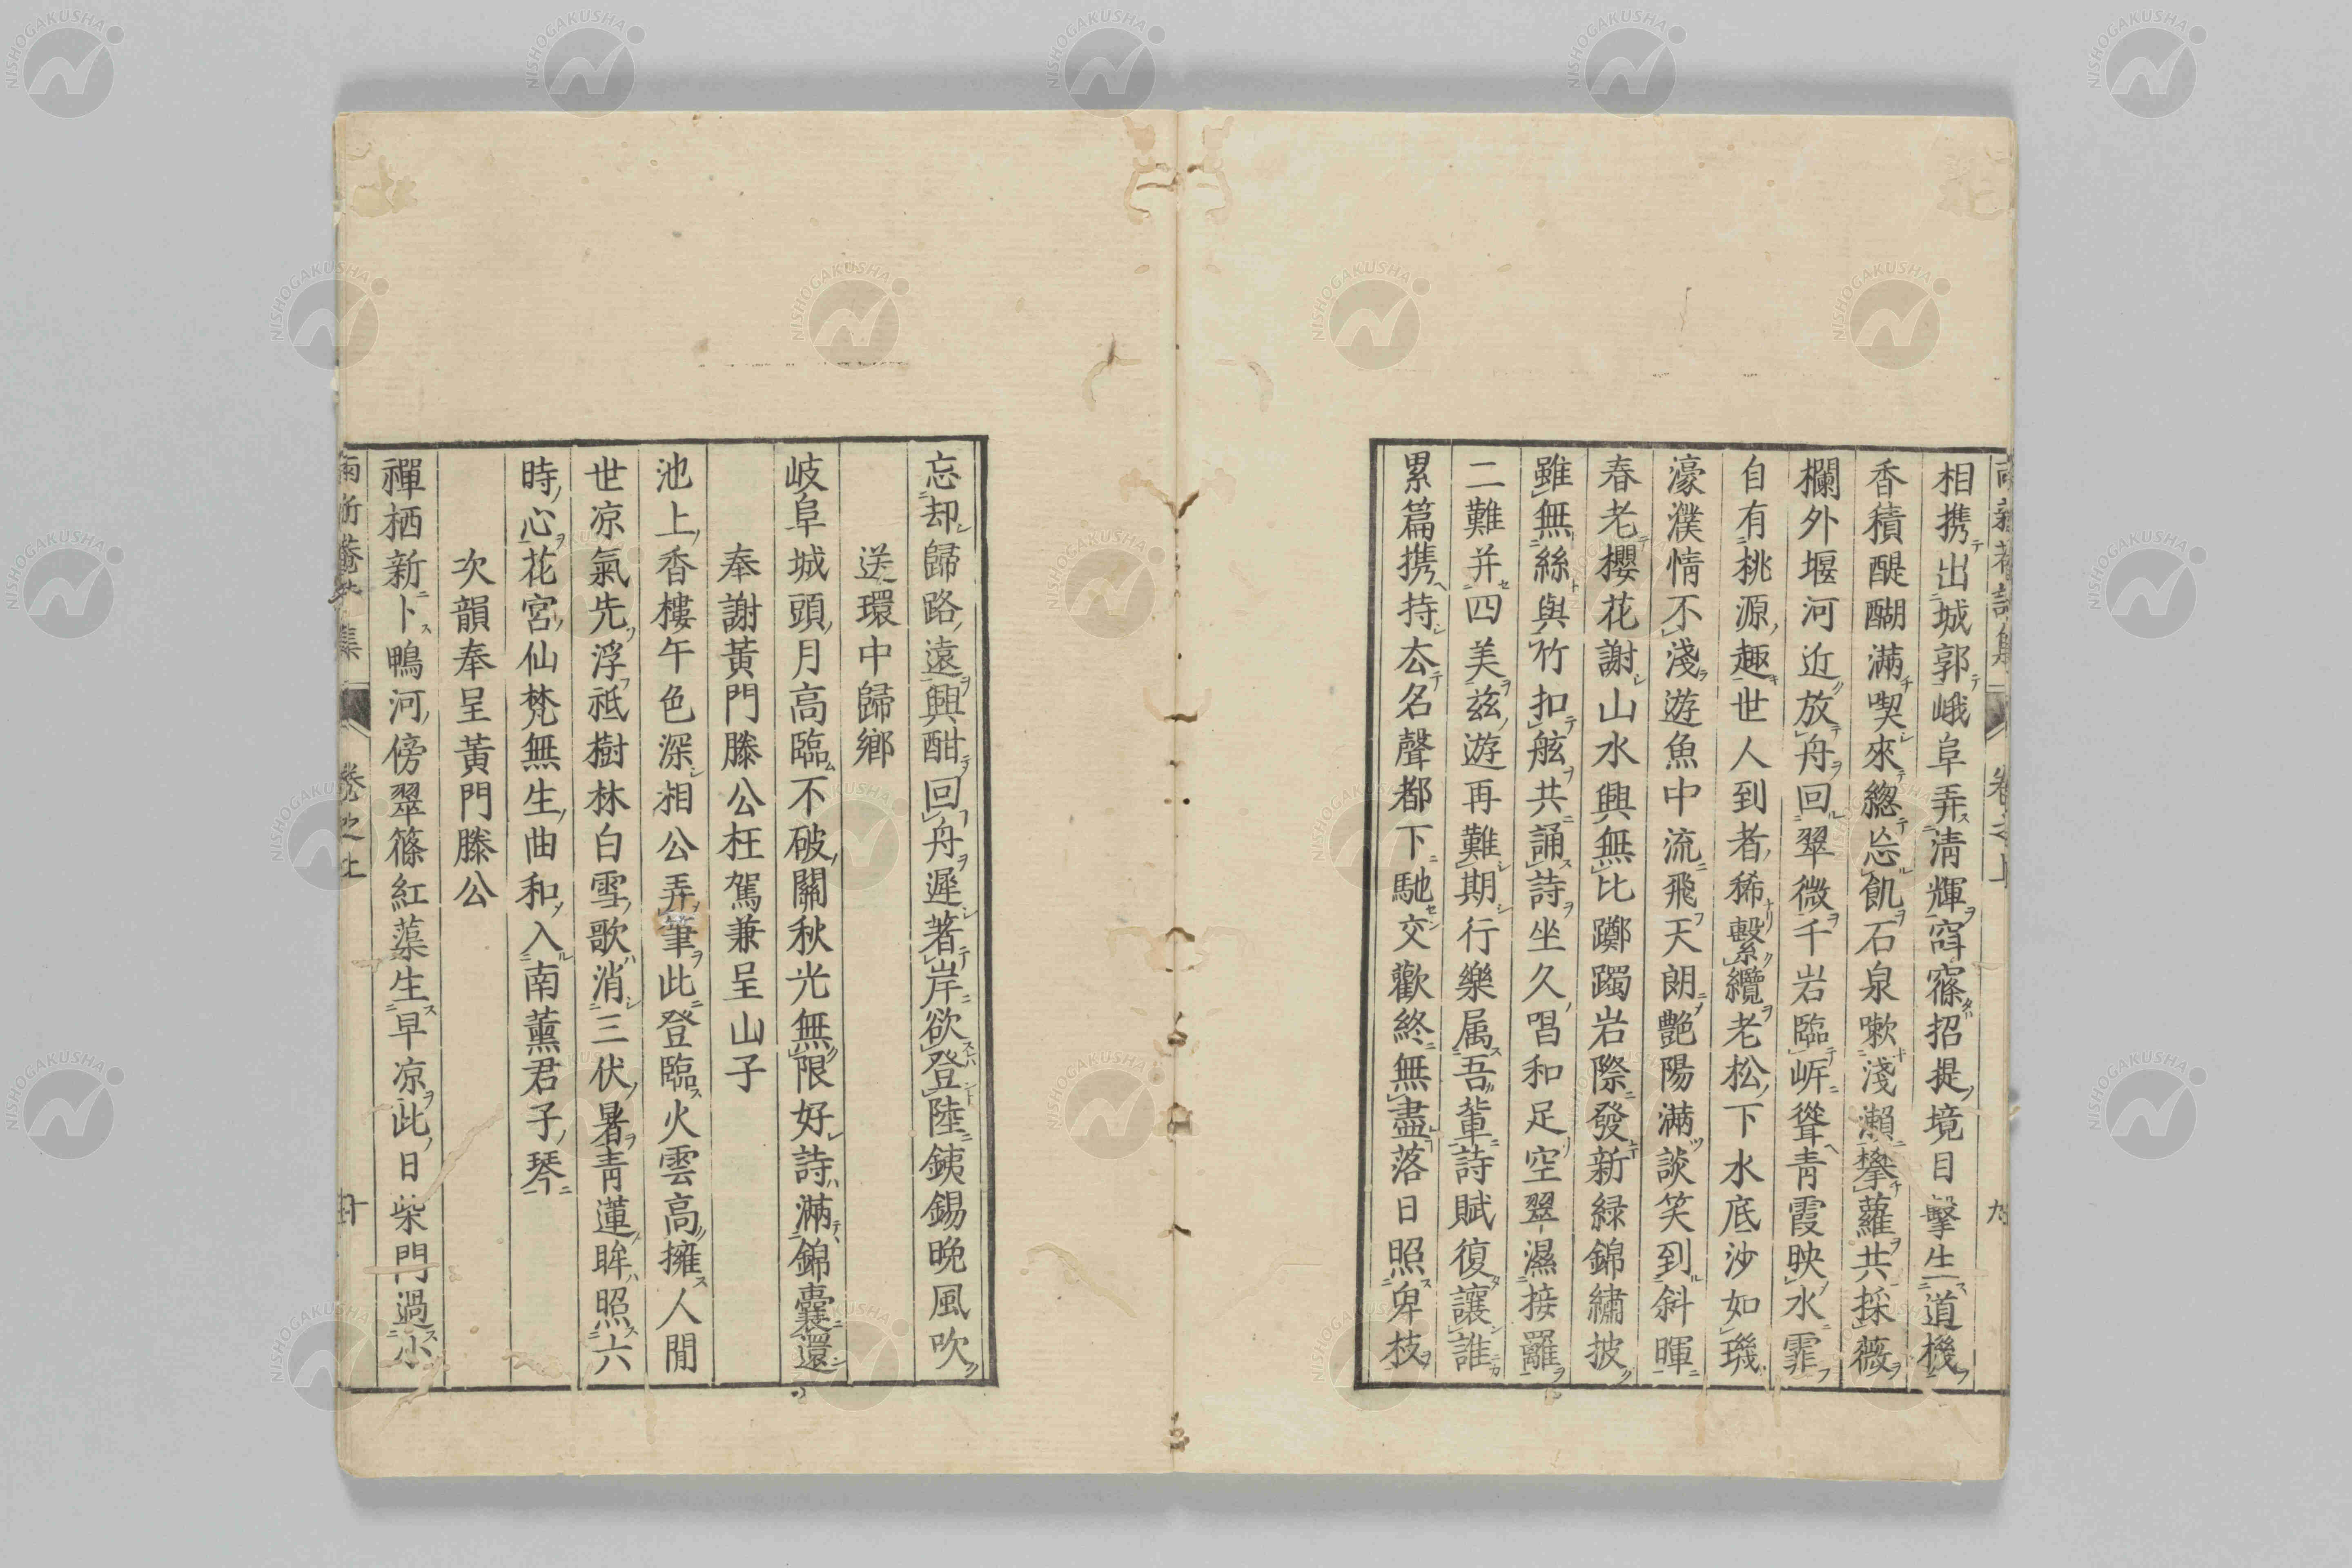 相携出城郭峨阜弄清輝窅窱招提境目擊生道機
香積醍醐滿喫來總忘飢石泉嗽淺瀨攀蘿共採薇
欄外堰河近放舟回翠微千岩臨岸聳青霞映水霏
自有桃源趣世人到者稀繫纜老松下水底沙如璣
濠濮情不淺遊魚中流飛天朗艷陽滿談笑到斜暉
春老櫻花謝山水興無比躑躅岩際發新緑錦繡披
雖無絲與竹扣舷共誦詩坐久唱和足空翠濕接羅
二難并四美兹游再難期行樂属吾輩詩賦復讓誰
累篇携持去名聲都下馳交歡終無盡落日照卑枝
忘却歸路遠興酣回舟遲著岸欲登陸銕錫晚風吹
送環中歸鄉
岐阜城頭月高臨不破關秋光無限好詩滿錦囊還
奉謝黃門滕公枉駕兼呈山子
池上香樓午色深相公弄筆此登臨火雲高擁人間
世凉氣先浮祗樹林白雪歌消三伏暑青蓮眸照六
時心花宮仙梵無生曲和入南薰君子琴
次韻奉呈黃門滕公
禪栖新卜鴨河傍翠篠紅蕖生早凉此日柴門過小
卷之上
十
NISHOGAKUSHA